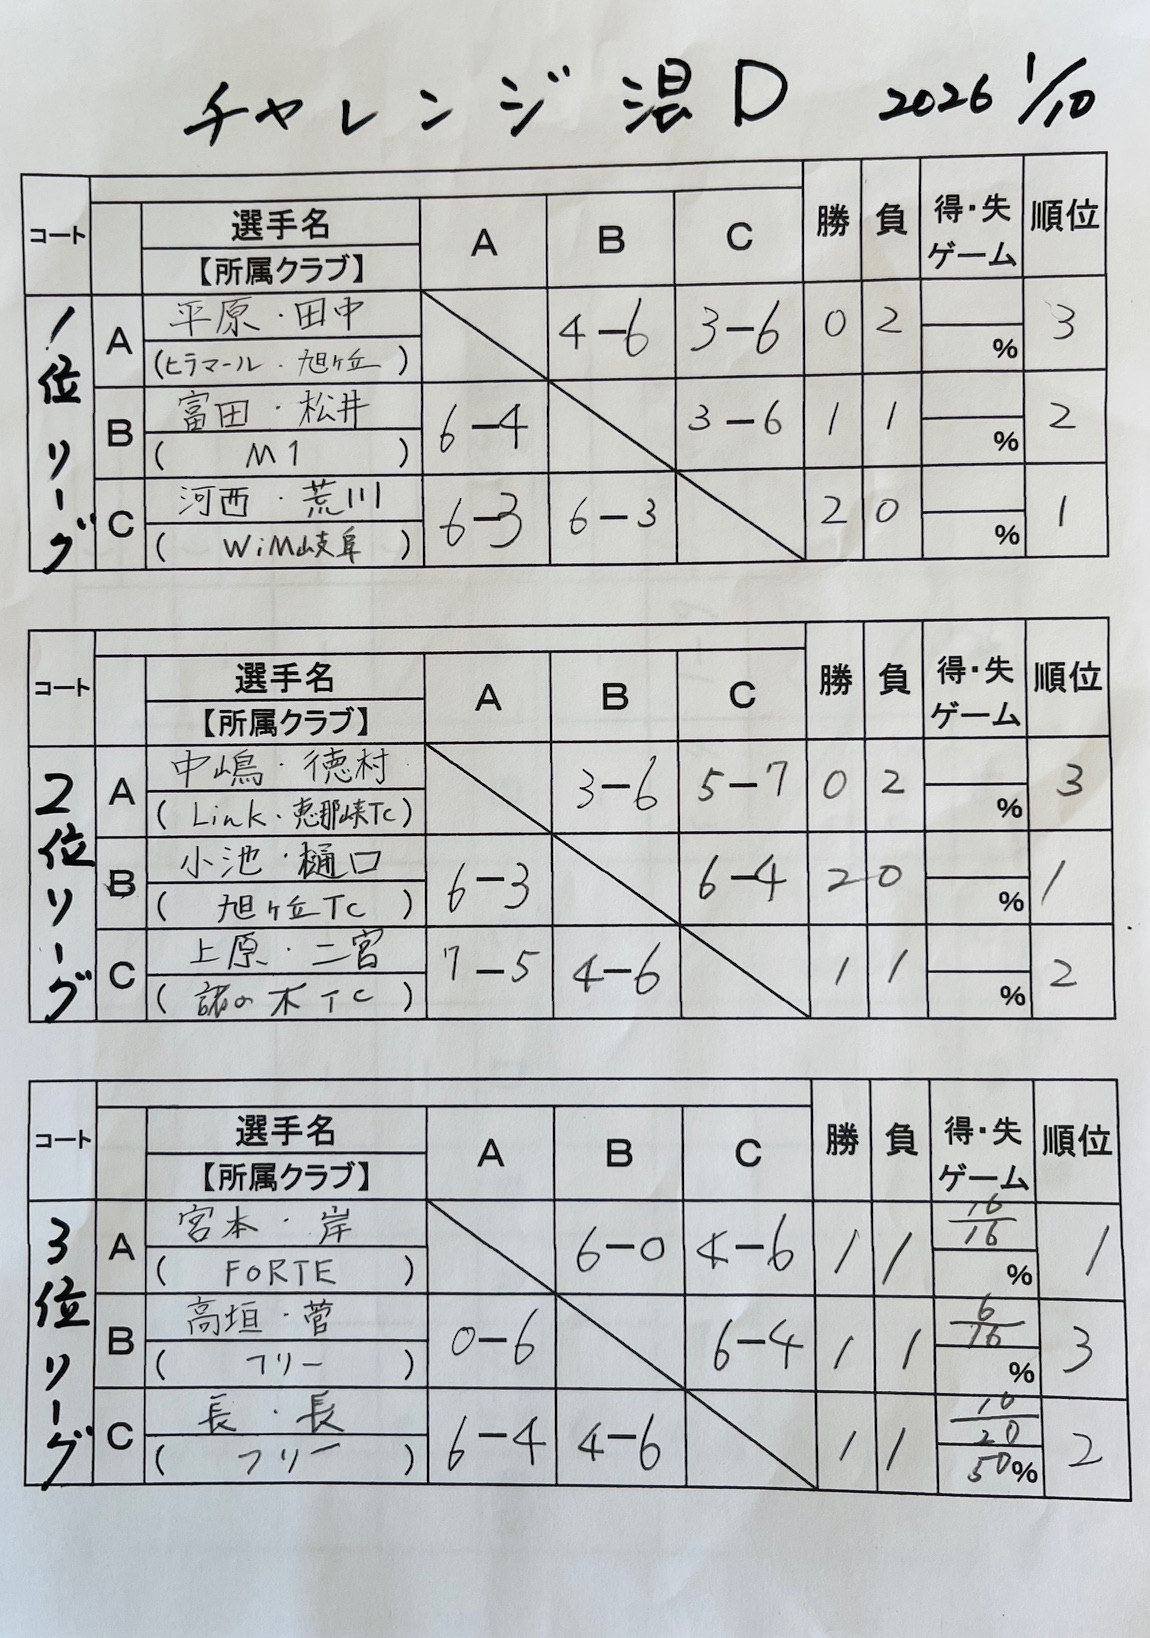 チャレンジ 混D 2026 1/10
コート 選手名 A B C 勝 負 得・失 順位
【所属クラブ】 ゲーム
1位リーグ
A 平原・田中 4-6 3-6 0 2 3
(ヒラマール・旭ヶ丘) %
B 富田・松井 6-4 3-6 1 1 2
( M1 ) %
C 河西・荒川 6-3 6-3 2 0 1
( WiM岐阜 ) %
コート 選手名 A B C 勝 負 得・失 順位
【所属クラブ】 ゲーム
2位リーグ
A 中嶋・徳村 3-6 5-7 0 2 3
( Link・恵那峡TC) %
B 小池・樋口 6-3 6-4 2 0 1
( 旭ヶ丘TC ) %
C 上原・二宮 7-5 4-6 1 1 2
( 諸の木TC ) %
コート 選手名 A B C 勝 負 得・失 順位
【所属クラブ】 ゲーム
3位リーグ
A 宮本・岸 6-0 4-6 1 1 16/16 1
( FORTE ) %
B 高垣・菅 0-6 6-4 1 1 6/16 3
( フリー ) %
C 長・長 6-4 4-6 1 1 10/20 2
( フリー ) 50%